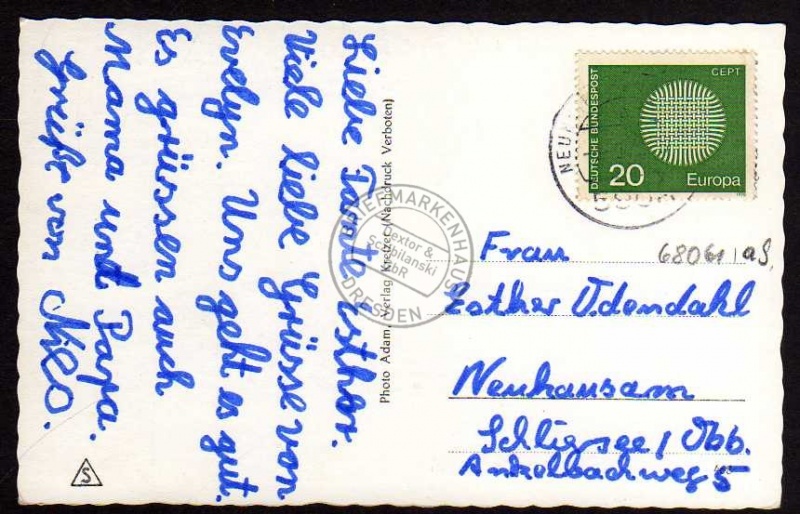 Liebe Tante Esther.
Viele liebe Grüsse von
Evelyn. Uns geht es gut.
Es grüssen auch
Mama und Papa.
Grüße von Nico.
Photo Adam, Verlag Kreuzer (Nachdruck Verboten)
S
DEUTSCHE BUNDESPOST
CEPT
20 Europa
NEU
68061 as.
Frau
Esther Udendahl
Neuhausam
Schliersee/Obb.
Ankelbachweg 5
BRIEFMARKENHAUS
Textor &
Schibilanski
GbR
DRESDEN